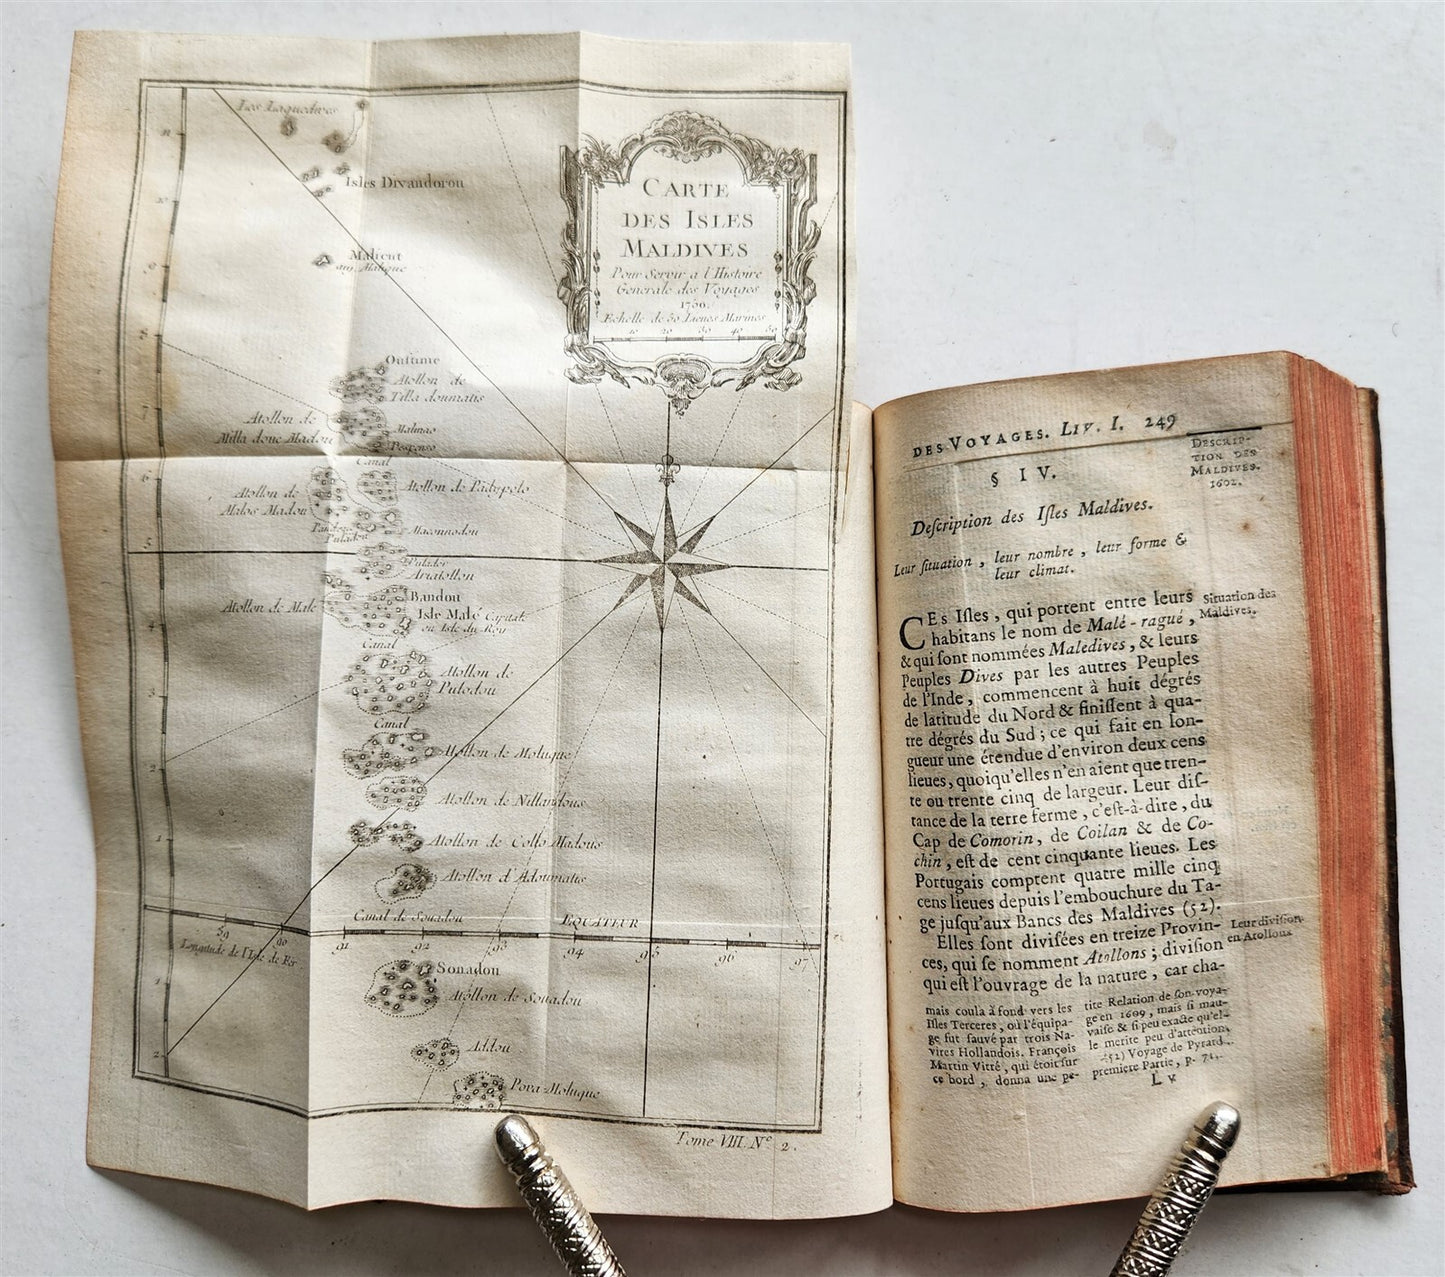 Les Laquedives
Isles Divandorou
Malicut
ou Malique
CARTE
DES ISLES
MALDIVES
Pour Servir a l'Histoire
Generale des Voyages
1750.
Echelle de 50 Lieues Marines
10 20 30 40 50
Oustime
Atollon de
Tilla doumatis
Atollon de
Milla doue Madou
Malmao
Canal
Atollon de
Malos Madou
Atollon de Padypolo
Maconnodou
Ariatollon
Bandou
Atollon de Male
Isle Malé Capitale
ou Isle du Roy
Canal
Atollon de
Pulodou
Canal
Atollon de Moluque
Atollon de Nillandous
Atollon de Collo Madous
Atollon d'Adoumatis
Canal de Souadou
EQUATEUR
89 90 91 92 93 94 95 96 97
Longitude de l'Isle de Fer
Souadou
Atollon de Souadou
Addou
Pova Moluque
Tome VIII. N.º 2.
DES VOYAGES. LIV. I. 249
DESCRIP-
TION DES
MALDIVES.
1602.
§ IV.
Deſcription des Iſles Maldives.
Leur ſituation, leur nombre, leur forme &
leur climat.
CEs Iſles, qui portent entre leurs
habitans le nom de Malé-ragué,
& qui ſont nommées Maledives, & leurs
Peuples Dives par les autres Peuples
de l'Inde, commencent à huit dégrés
de latitude du Nord & finiſſent à qua-
tre dégrés du Sud; ce qui fait en lon-
gueur une étendue d'environ deux cens
lieues, quoiqu'elles n'en aient que tren-
te ou trente cinq de largeur. Leur diſ-
tance de la terre ferme, c'eſt-à-dire, du
Cap de Comorin, de Coilan & de Co-
chin, eſt de cent cinquante lieues. Les
Portugais comptent quatre mille cinq
cens lieues depuis l'embouchure du Ta-
ge juſqu'aux Bancs des Maldives (52).
Elles ſont diviſées en treize Provin-
ces, qui ſe nomment Atollons; diviſion
qui eſt l'ouvrage de la nature, car cha-
Situation des
Maldives.
Leur diviſion
en Atollons
mais coula à fond vers les
Iſles Terceres, où l'équipa-
ge fut ſauvé par trois Na-
vires Hollandois. François
Martin Vitré, qui étoit ſur
ce bord, donna une pe-
tite Relation de ſon voya-
ge en 1609, mais ſi mau-
vaiſe & ſi peu exacte qu'el-
le merite peu d'attention.
(52) Voyage de Pyrard.
premiere Partie, p. 71.
L v